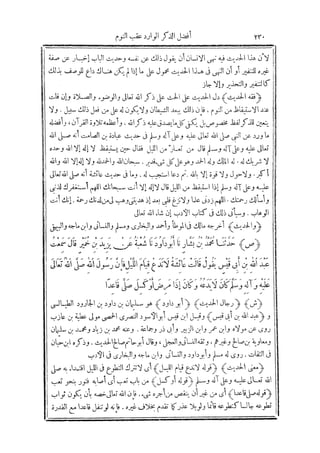 ٢٣٠ أفضل الذكر الوارد عقب النوم
لأن هذا الحديث فيه نهى الانسان أن يقول ذلك عن نفسه وحديث الباب إخبار عن صفة
غيره للتنفير أو أن النهى فى هذا الحديث محمول على ما إذا لم يكن هناك داع للوصف بذلك
كالتنفير والتحذير وإلا جاز
﴿فقه الحديث﴾ دل الحديث على الحث على ذكر الله تعالى والوضوء. والصلاة وإن قلت
عند الاستيقاظ من النوم. فإن ذلك يبعد الشيطان ولا يكون له على من فعل ذلك سبيل. ولا
يتعين للذكر لفظ مخصوص بل يكفى كل ما يصدق عليه ذكر الله. وأعظمه تلاوة القرآن. وأفضله
ما ورد عن النبى صلى الله تعالى عليه وعلى آله وسلم فى حديث عبادة بن الصامت أنه صلى الله
تعالى عليه وعلى آله وسلم قال من تعار من الليل فقال حين يستيقظ لا إله إلا الله وحده
لا شريك له. له الملك وله الحمد وهو على كل شىء قدير. سبحان الله والحمد لله ولا إله إلا الله والله
أكبر. ولا حول ولا قوة إلا بالله. ثم دعا استجيب له. وما فى حديث عائشة أنه صلى الله تعالى
عليه وعلى آله وسلم إذا استيقظ من الليل قال لا إله إلا أنت سبحانك اللهم أستغفرك لذنبى
وأسألك رحمتك. اللهم زدنى علما ولا تزغ قلبى بعد إذ هديتنى وهب لى من لدنك رحمة. إنك أنت
الوهاب. وسيأتى ذلك فى كتاب الأدب إن شاء الله تعالى
﴿والحديث﴾ أخرجه مالك فى الموطأ وأحمد والبخارى ومسلم والنسائى وابن ماجه والبيهقى
﴿ص﴾ حَدَّثَنَا مُحَمَّدُ بْنُ بَشَّارٍ نَا أَبُو دَاوُدَ نَا شُعْبَةُ عَنْ يَزِيدَ بْنِ خُمَيْرٍ قَالَ سَمِعْتُ
عَبْدَ اللهِ بْنَ أَبِى قَيْسٍ يَقُولُ قَالَتْ عَائِشَةُ لَا تَدَعْ قِيَامَ اللَّيْلِ فَإِنَّ رَسُولَ اللهِ صَلَّى اللهُ تَعَالَى
عَلَيْهِ وَآلِهِ وَسَلَّمَ كَانَ لَا يَدَعُهُ وَكَانَ إِذَا مَرِضَ أَوْ كَسِلَ صَلَّى قَاعِدًا
﴿ش﴾ ﴿رجال الحديث﴾ ﴿أبو داود﴾ هو سليمان بن داود بن الجارود الطيالسى
و ﴿عبد الله بن أبى قيس﴾ وقيل ابن قيس أبو الأسود النصرى الحمصى مولى عطية بن عازب
روى عن مولاه وابن عمر وابن الزبير. وأبى ذر وجماعة. وعنه محمد بن زياد ومحمد بن سليمان
ومعاوية بن صالح وغيرهم. وثقه النسائى والعجلى، وقال أبو حاتم صالح الحديث. وذكره ابن حبان
فى الثقات. روى له مسلم وأبو داود والنسائى وابن ماجه والبخارى فى الأدب
﴿معنى الحديث﴾ ﴿قوله لا تدع قيام الليل﴾ أى لا تترك التطوع فى الليل اقتداء به صلى
الله تعالى عليه وعلى آله وسلم ﴿قوله أو كسل﴾ من باب تعب أى أصابه فتور بنحو تعب
﴿قوله صلى قاعدا﴾ أى من غير أن ينقص من أجره شىء. فإن الله تعالى خصه بأن يكون ثواب
تطوعه جالسا كتطوعه قائما ولو بلا عذر كما تقدم بخلاف غيره. فإنه لو تنفل قاعدا مع القدرة